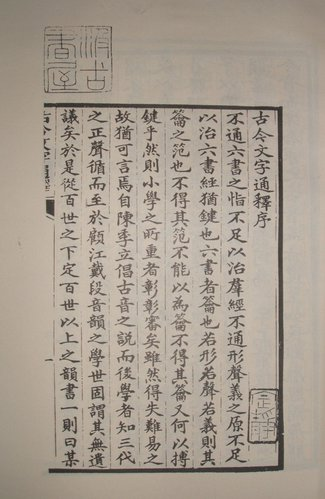 古今文字通釋序
不通六書之恉不足以治羣經不通形聲義之原不足
以治六書經猶鍵也六書者籥也若形若聲若義則其
籥之笵也不得其笵不能以為籥不得其籥又何以搏
鍵乎然則小學之所重者彰彰審矣雖然得失難易之
故猶可言焉自陳季立倡古音之說而後學者知三代
之正聲循而至於顧江戴段音韻之學世固謂其無遺
議矣於是從百世之下定百世以上之韻書一則曰某
古今文字通釋
汲古書屋